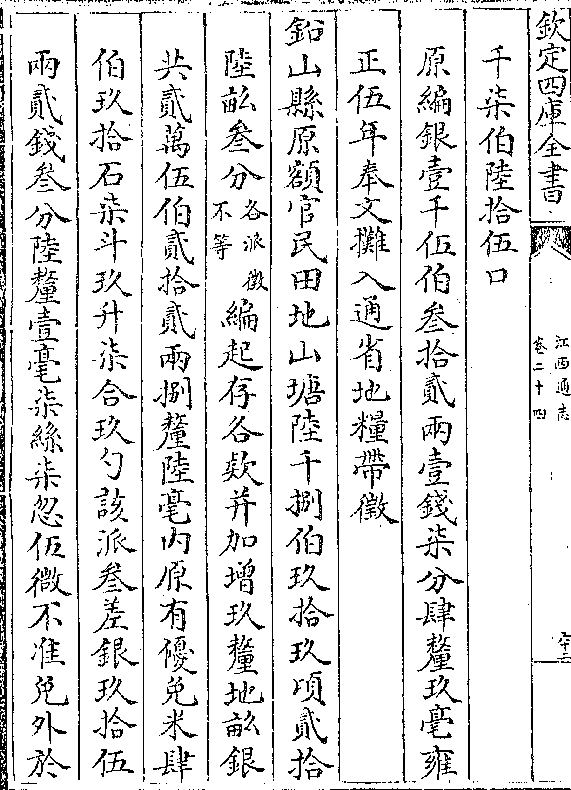 欽定四庫全書
江西通志
卷二十四
六十二
千柒伯陸拾伍口
原編銀壹千伍伯叁拾貳兩壹錢柒分肆釐玖毫雍
正伍年奉文攤入通省地糧帶徵
鉛山縣原額官民田地山塘陸千捌伯玖拾玖頃貳拾
陸畝叁分各派徵不等編起存各欵并加增玖釐地畝銀
共貳萬伍伯貳拾貳兩捌釐陸毫内原有優免米肆
伯玖拾石柒斗玖升柒合玖勺該派叁差銀玖拾伍
兩貳錢叁分陸釐壹毫柒絲柒忽伍微不准免外於